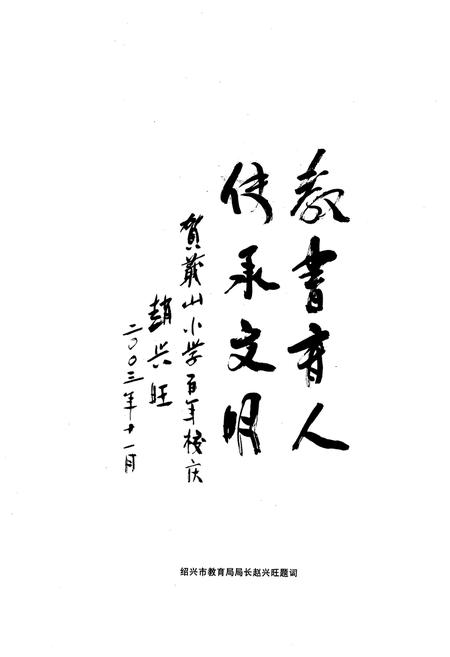 教书育人
传承文明
贺蕺山小学百年校庆
趙兴旺
二〇〇三年十一月
绍兴市教育局局长赵兴旺题词